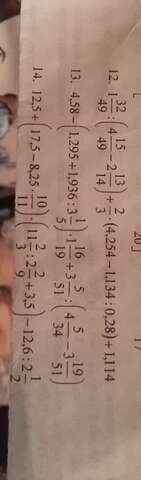 20]
12. 1 32/49 : (4 15/49 − 2 13/14) + 2/3 · (4,254−1,134 : 0,28) + 1,114
13. 4,58 − (1,295+1,936 : 3 1/5) · 1 16/19 + 3 5/51 : (4 5/34 − 3 19/51)
14. 12,5 + (17,5−8,25 · 10/11) · (11 2/3 : 2 2/9 + 3,5) −12,6 : 2 1/2